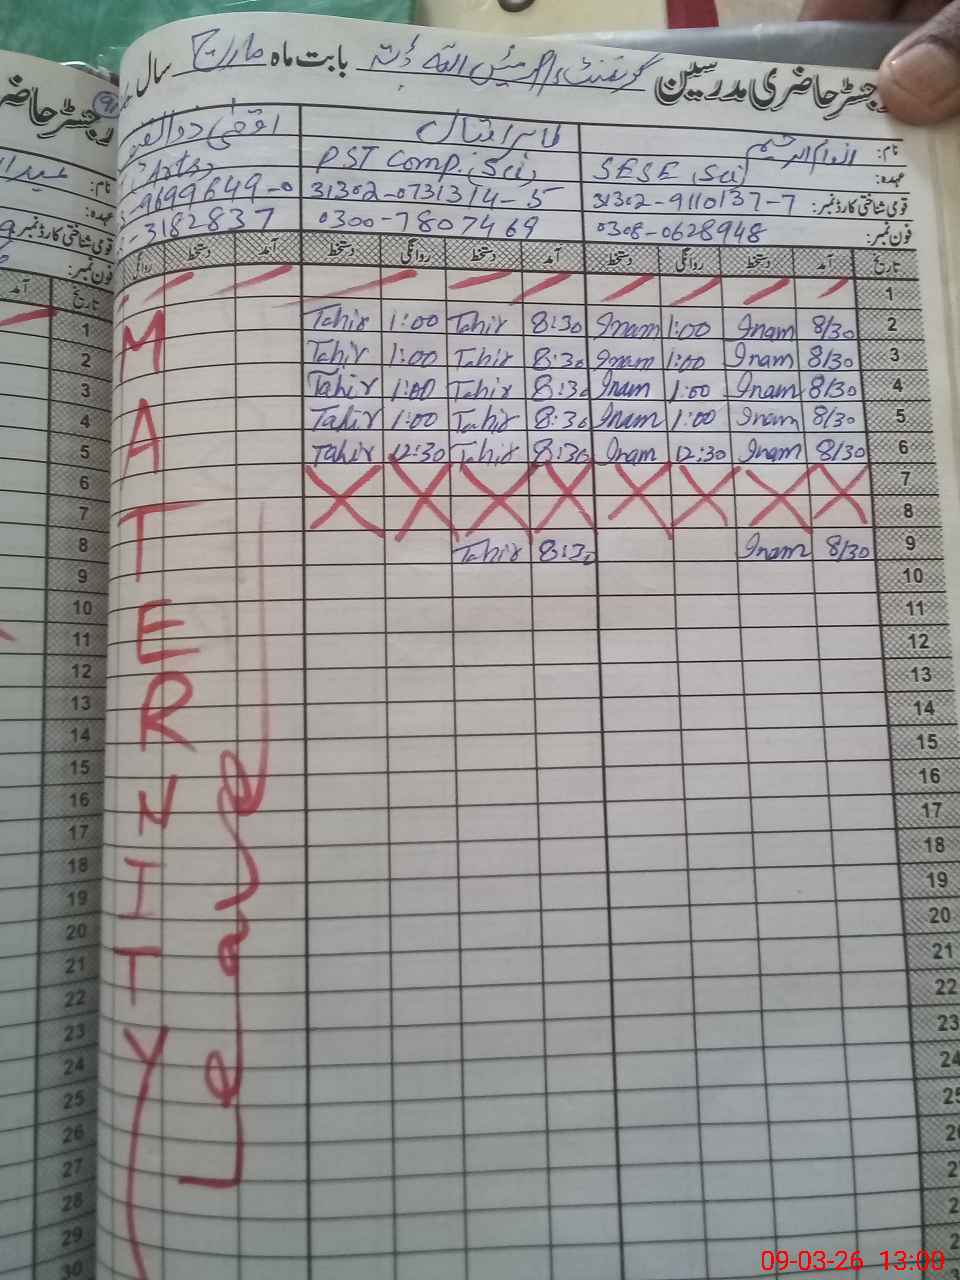 رجسٹر حاضری مدرسین گورنمنٹ بابت ماہ مارچ سال
نام: انعام الرحیم
طاہر اقبال
اقصیٰ
عہدہ: SESE Sci
PST Comp. Sci,
Arts
قومی شناختی کارڈ نمبر: 31302-9110137-7
31302-0731314-5
-9699649-0
فون نمبر: 0308-0628948
0300-7807469
-3182837
تاریخ آمد دستخط روانگی دستخط آمد دستخط روانگی دستخط آمد دستخط روانگی
1
Tahir 1:00 Tahir 8:30 Inam 1:00 Inam 8/30 2
Tahir 1:00 Tahir 8:30 Inam 1:00 Inam 8/30 3
Tahir 1:00 Tahir 8:30 Inam 1:00 Inam 8/30 4
Tahir 1:00 Tahir 8:30 Inam 1:00 Inam 8/30 5
Tahir 12:30 Tahir 8:30 Inam 12:30 Inam 8/30 6
7
8
Tahir 8:30 Inam 8/30 9
10
11
12
13
14
15
16
17
18
19
20
21
22
23
24
25
26
MATERNITY
رجسٹر حاضری
نام:
عہدہ:
قومی شناختی کارڈ نمبر:
فون نمبر:
تاریخ آمد
1
2
3
4
5
6
7
8
9
10
11
12
13
14
15
16
17
18
19
20
21
22
23
24
25
26
27
28
29
30
09-03-26 13:00